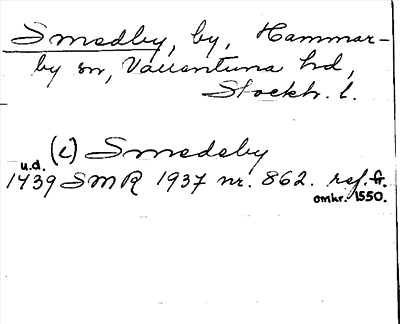 Smedby, by, Hammar-
by sn, Vallentuna hd,
Stockh. l.
(i) Smedeby
u.d.
1439 SMR 1937 nr. 862. ref. fr.
omkr. 1550.